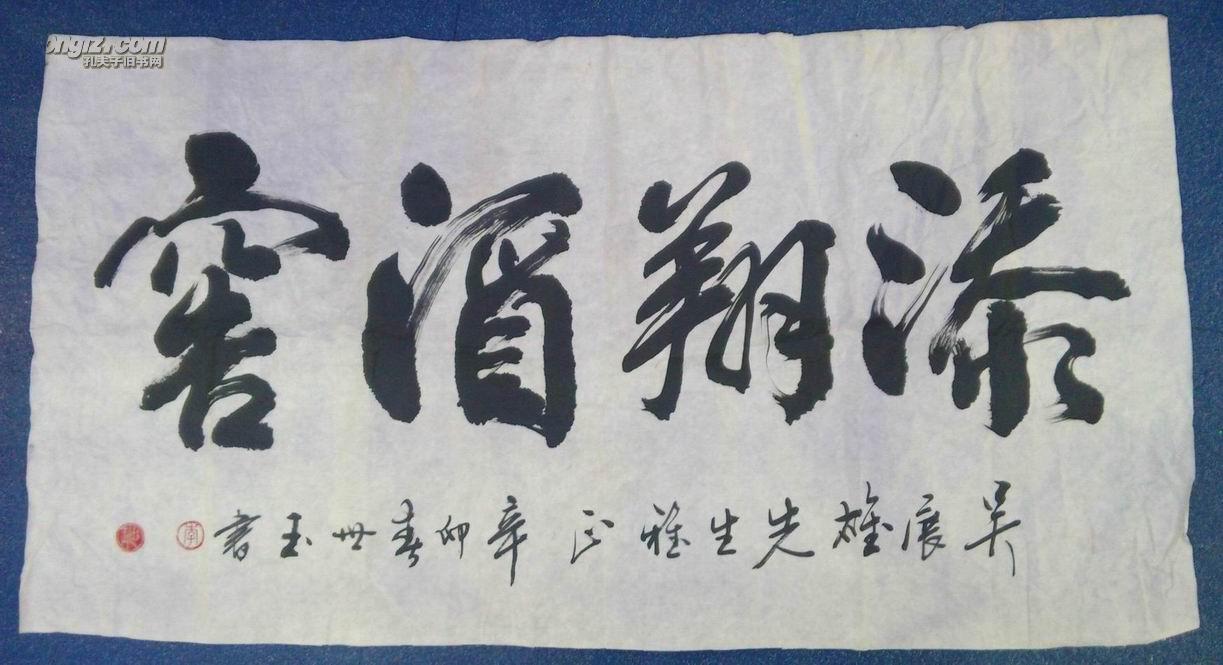 添翔酒窖
吴展雄先生雅正 辛卯春世玉书
ongfz.com
孔夫子旧书网